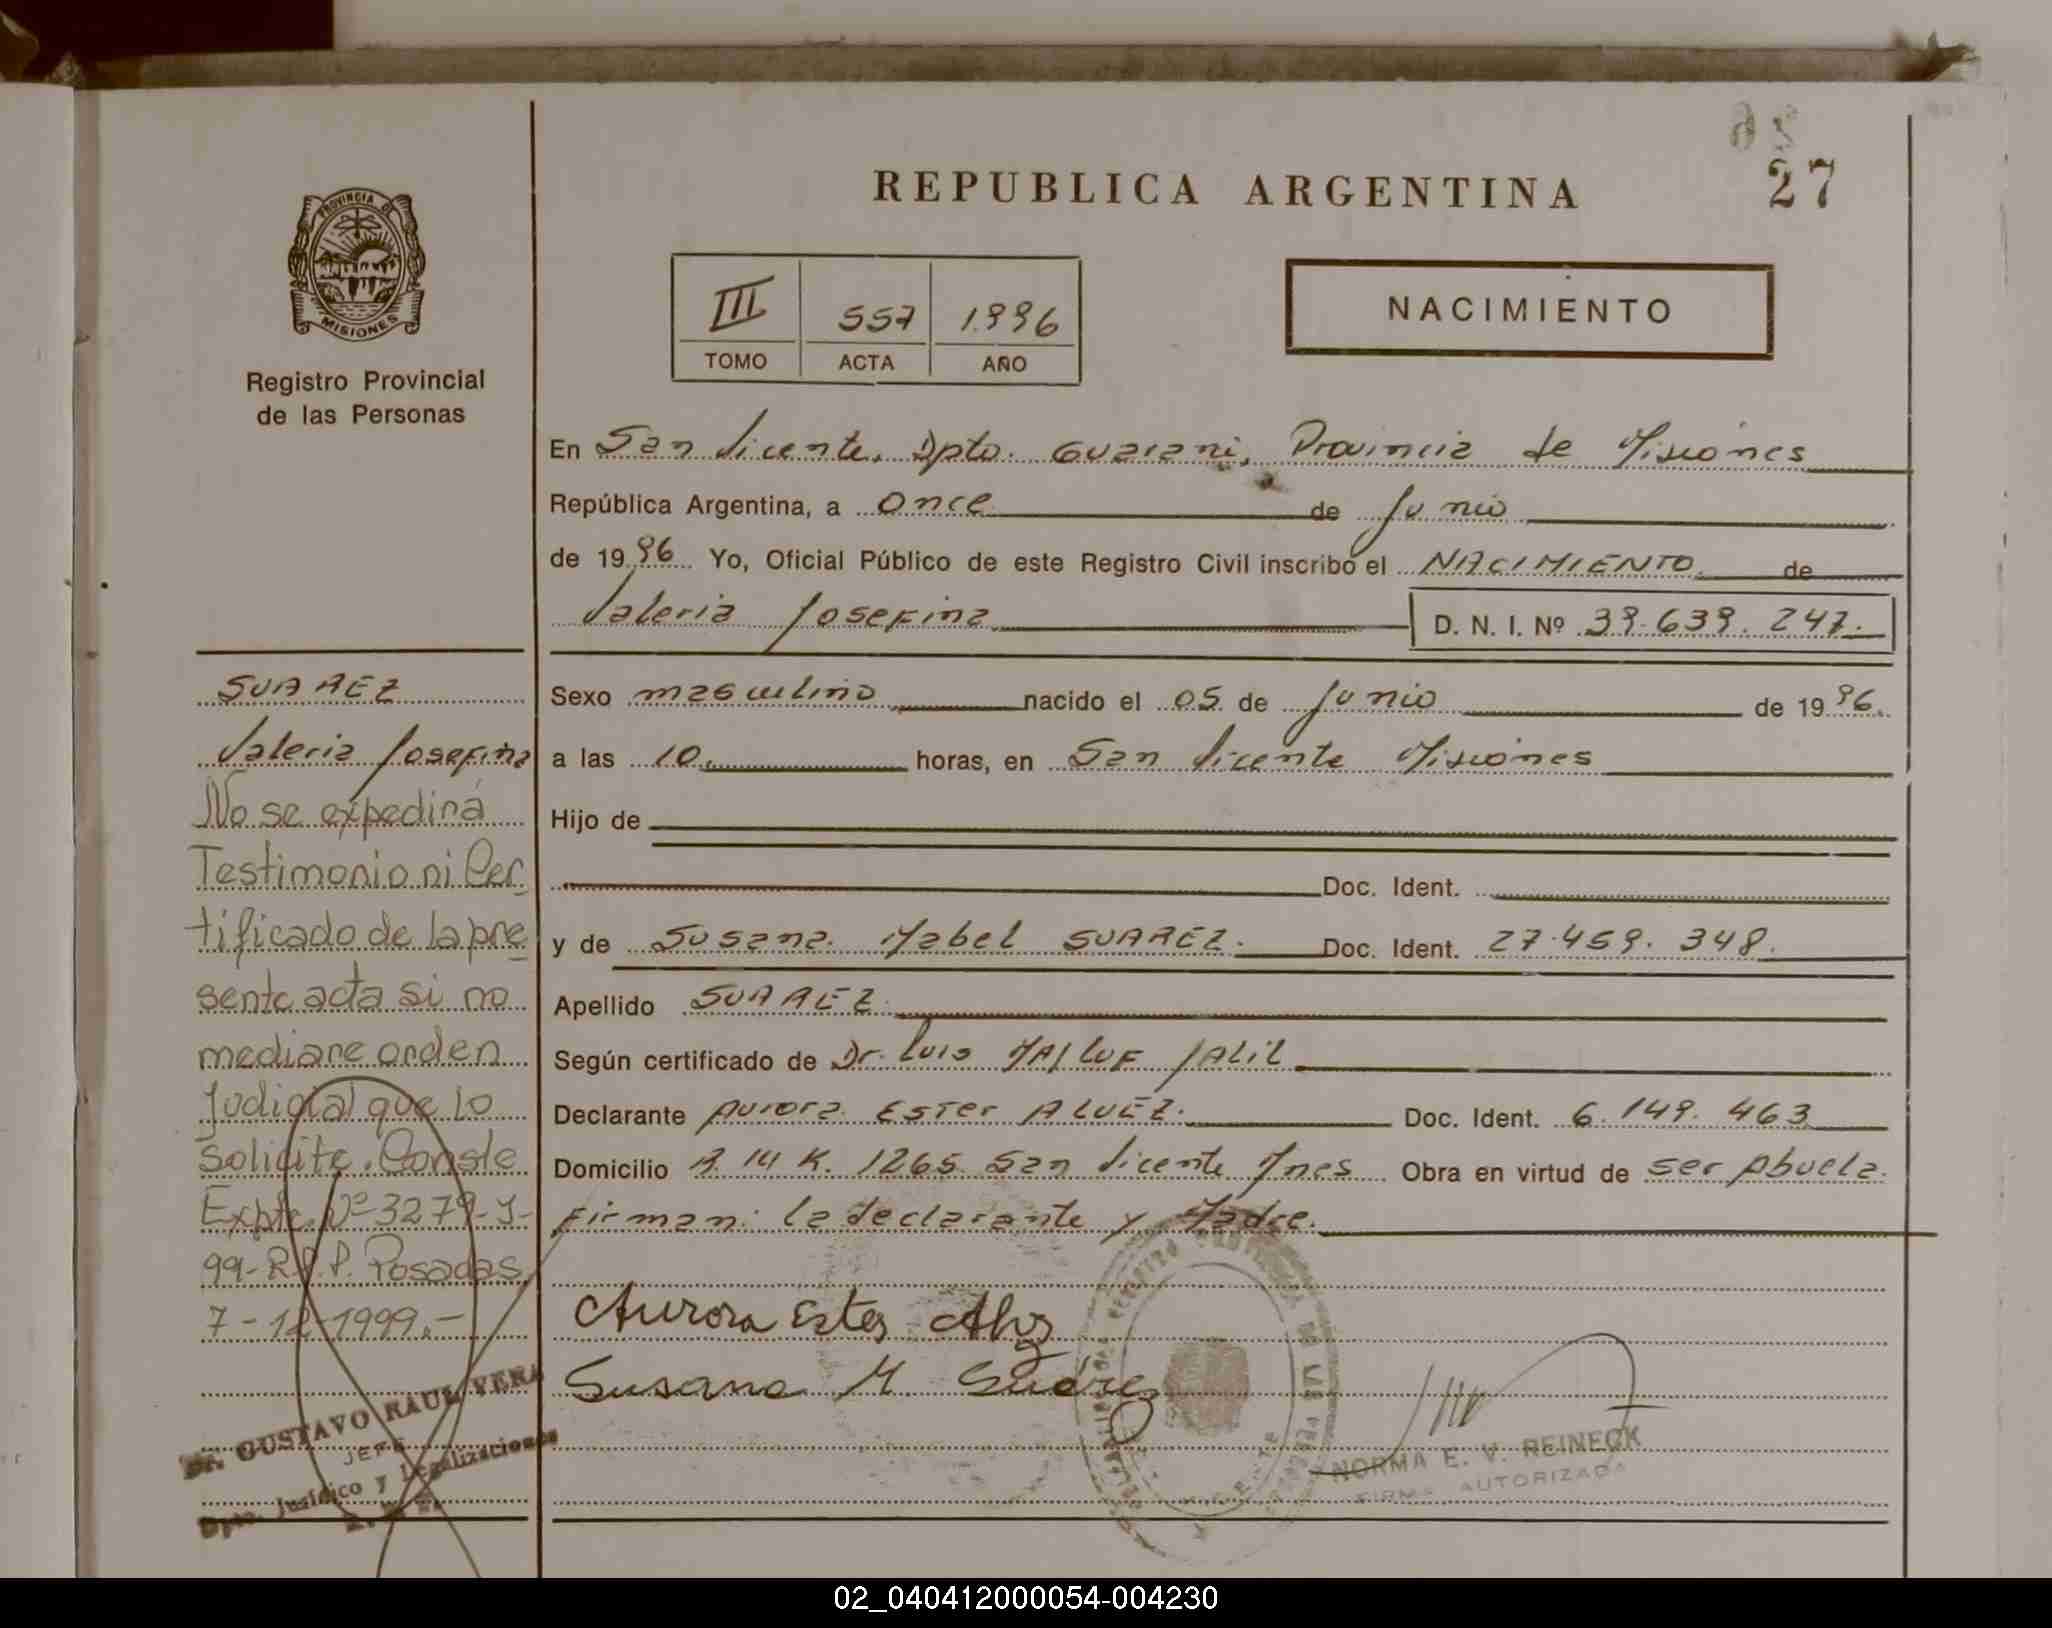 REPUBLICA ARGENTINA
27
PROVINCIA DE
MISIONES
Registro Provincial
de las Personas
III 557 1.996
TOMO ACTA AÑO
NACIMIENTO
En San Vicente, Dpto. Guarani, Provincia de Misiones
República Argentina, a once de Junio
de 1996 Yo, Oficial Público de este Registro Civil inscribo el NACIMIENTO de
Valeria Josefina D. N. I. Nº 39.639.247.
Sexo masculino nacido el 05 de Junio de 1996.
a las 10. horas, en San Vicente Misiones
Hijo de
Doc. Ident.
y de Susana Mabel SUAREZ. Doc. Ident. 27.459.348.
Apellido SUAREZ.
Según certificado de Dr. Luis MALUF JALIL
Declarante Aurora Ester ALVEZ. Doc. Ident. 6.149.463
Domicilio R. 14 K. 1265 San Vicente Mnes. Obra en virtud de ser Abuela.
Firman: la declarante y Madre.
SUAREZ
Valeria Josefina
No se expedirá
Testimonio ni Cer
tificado de la pre
sente acta si no
mediare orden
Judicial que lo
solicite. Conste
Expte. Nº 3279-J-
99-R.P.P. Posadas,
7-12-1999.-
Dr. GUSTAVO RAUL VERA
JEFE
Dpto. Jurídico y Legalizaciones
R.P.P.
Aurora Ester Alvez
Susana M. Suárez
NORMA E. V. REINECK
FIRMA AUTORIZADA
02_040412000054-004230